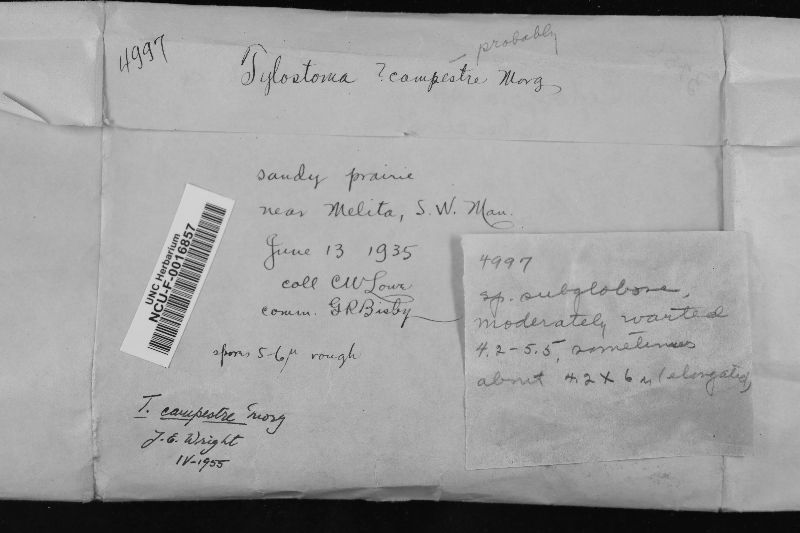 4997
— probably
Tylostoma ? campestre Morg
sandy prairie
near Melita, S.W. Man.
June 13 1935
coll C W Lowe
comm. G R Bisby
spores 5-6 μ rough
UNC Herbarium
NCU-F-0016857
T. campestre Morg
J. E. Wright
IV-1955
4997
sp. subglobose,
moderately warted
4.2-5.5, sometimes
about 4.2 X 6 μ (elongated)